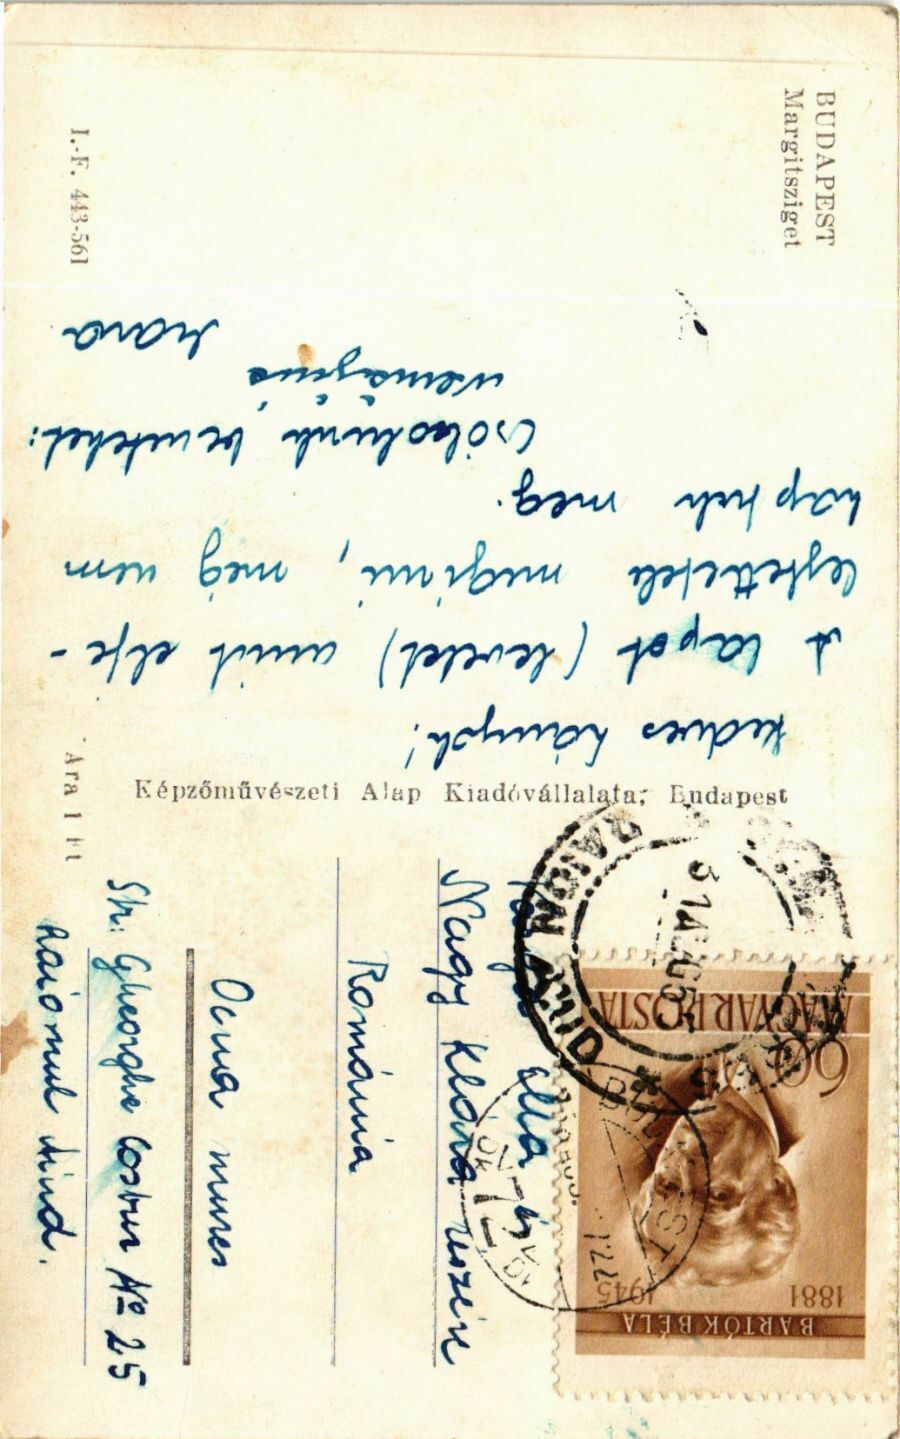 BUDAPEST
Margitsziget
I.-F. 443-561
Kedves Lányok!
A lapot (levelet) amit elfe-
lejtettetek megírni, még nem
kaptuk meg.
Csókolunk benneteket:
Mara
Képzőművészeti Alap Kiadóvállalata, Budapest
Ára 1 Ft
BARTÓK BÉLA
1881 1945
60
MAGYAR POSTA
BUDAPEST
RAION AIUD
Ella és
Nagy Klára részére
Románia
Ocna mures
Str. Gheorghe Cosbuc No 25
Raionul Aiud.